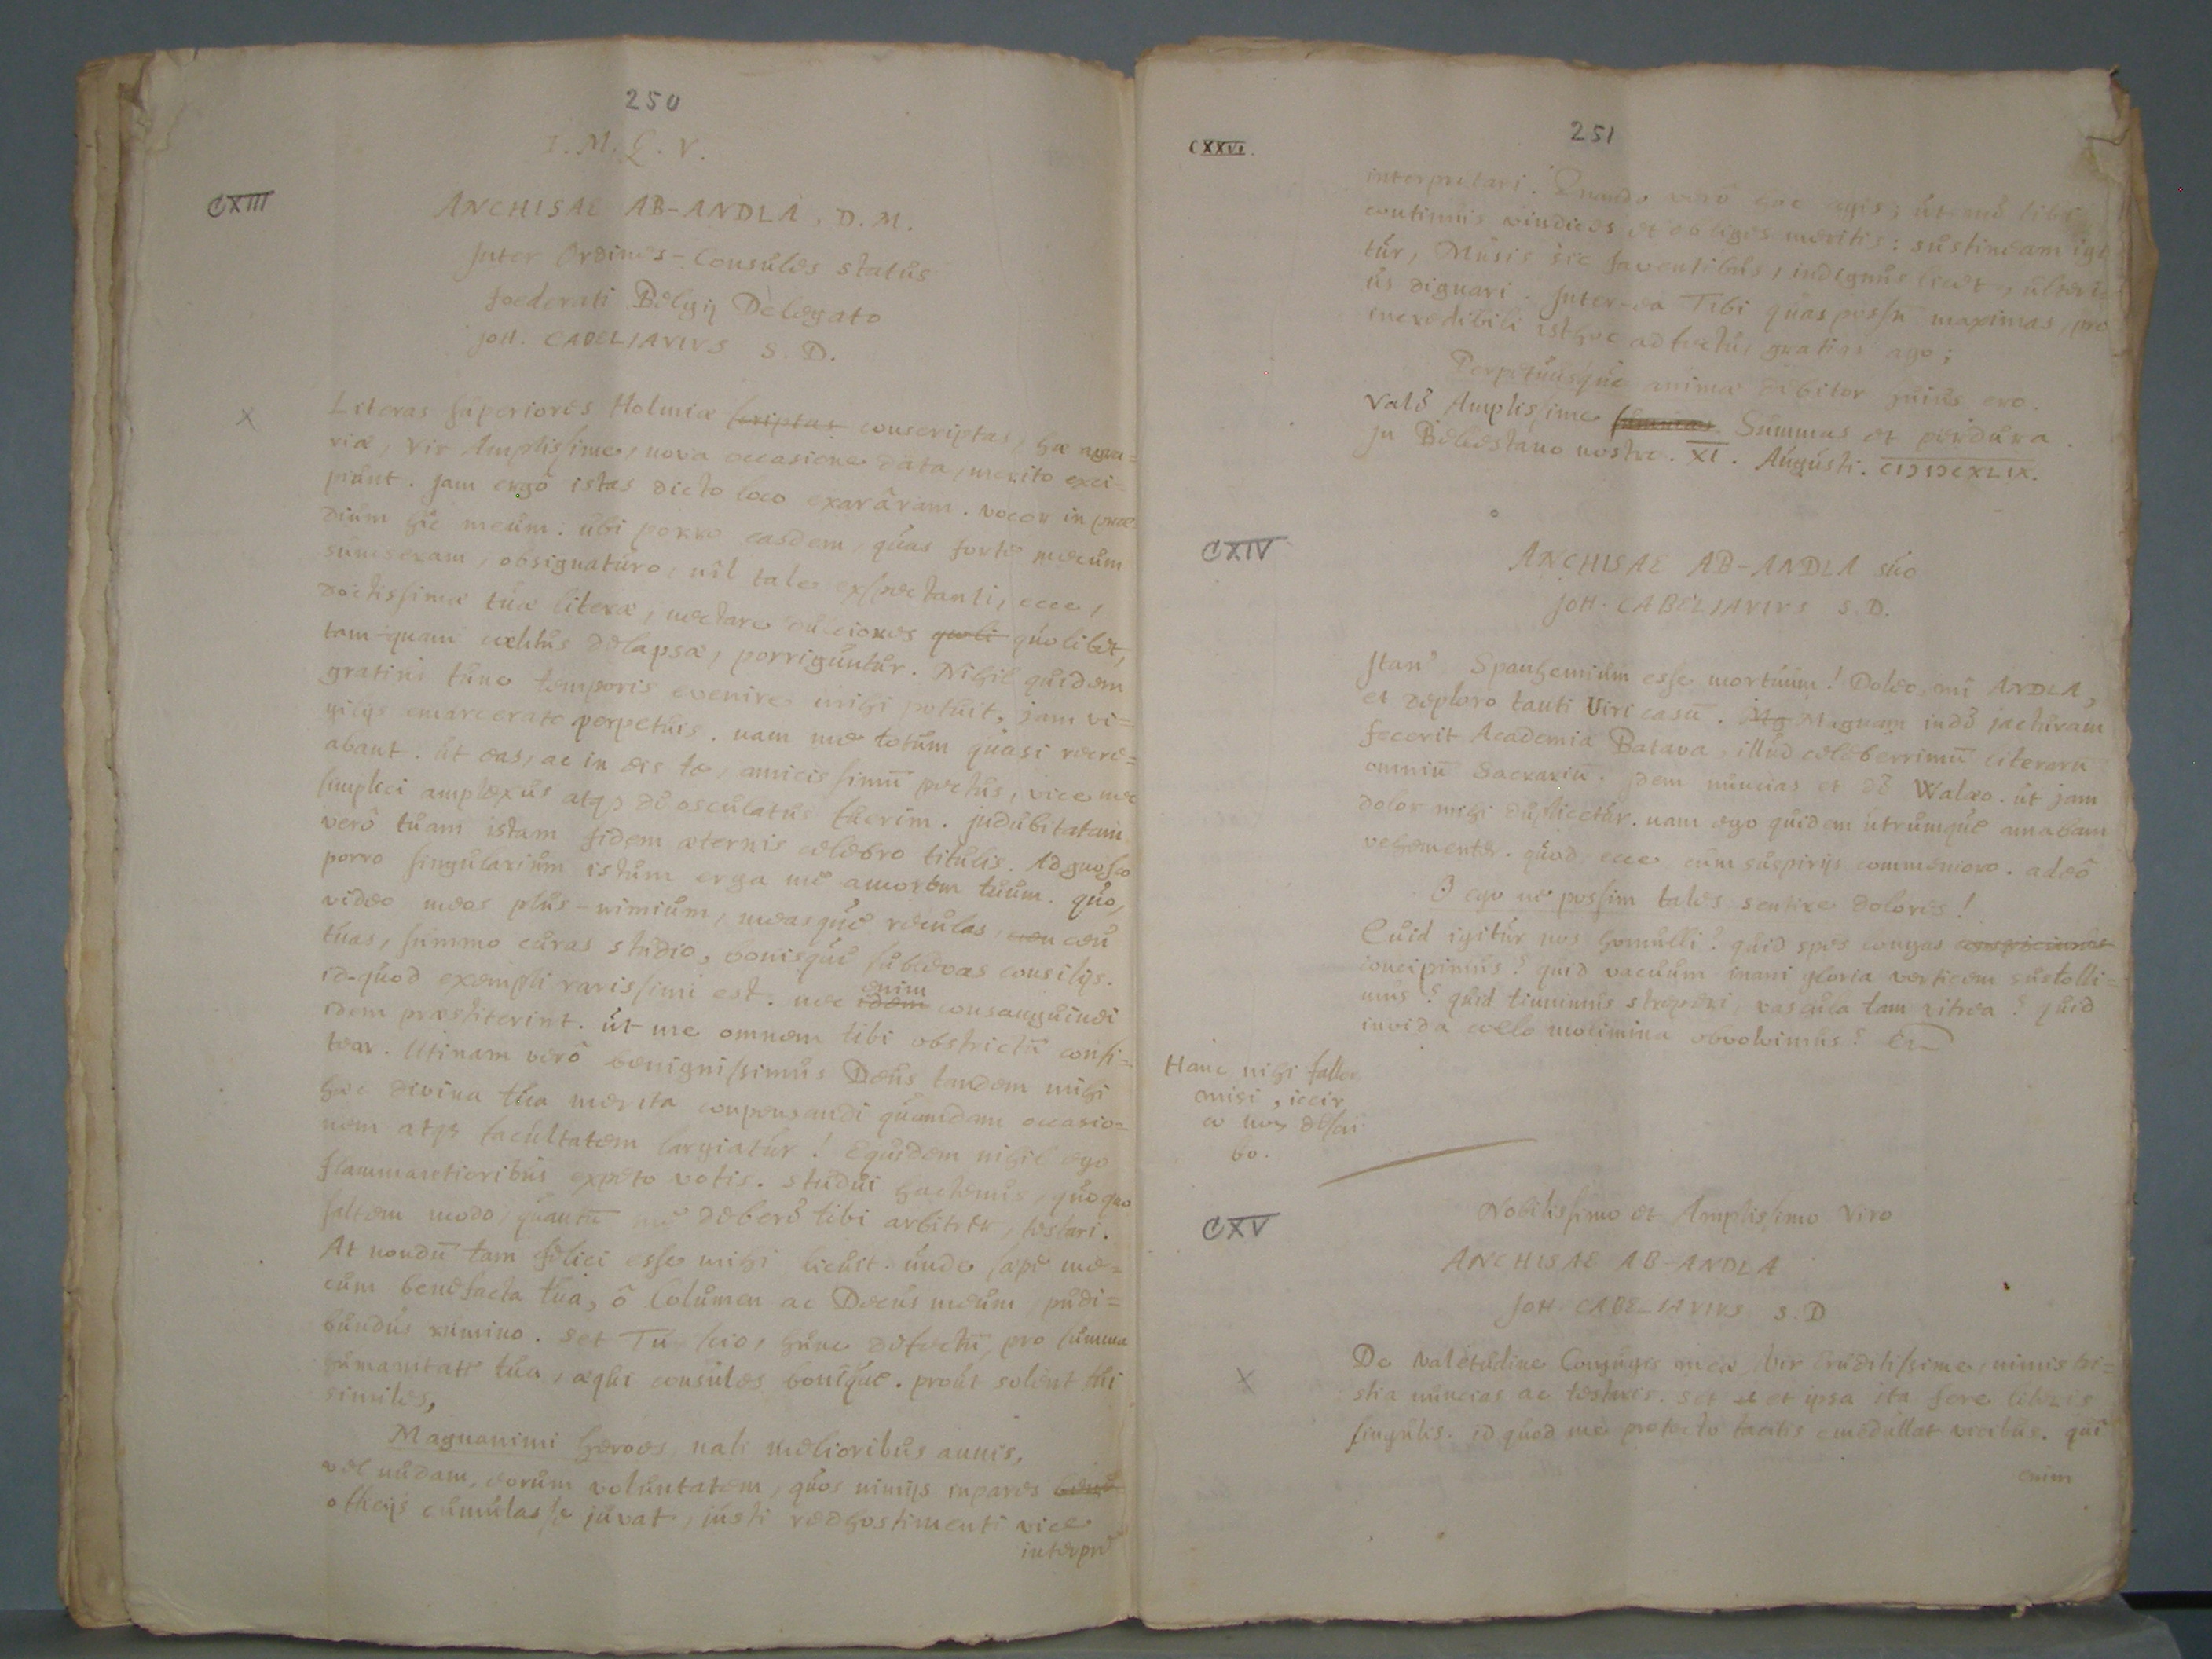 250
I. M. Q. V.
CXIII
ANCHISAE AB-ANDLA, D. M.
Inter Ordines-Consules status
foederati Belgij Delegato
JOH. CABELIAVIVS S. D.
X
Literas superiores Holmiæ scriptas conscriptas, hæ
riæ, Vir Amplissime, nova occasione data, merito exci=
piunt. Jam ergò istas dicto loco exarâram. vocor in præ
dium hîc meum. ubi porro easdem, quas fortè mecum
sumseram, obsignaturo, nîl tale exspectanti, ecce,
doctissimæ tuæ literæ, nectare dulciores quoli quolibet,
tam-quam cælitus delapsæ, porriguntur. Nihil quidem
gratius tunc temporis evenire mihi potuit, jam vi=
gilijs emarcerato perpetuis. nam me totum quasi recre=
abant. Ut eas, ac in eis te, amicissimū pectus, vice me
simplici amplexus atqꝫ deosculatus fuerim. Jndubitatam
verò tuam istam fidem æternis celebro titulis. Adgnosco
porro singularium istum erga mê amorem tuum. quo,
video meos plus-nimium, measquê reculas, ceu ceu
tuas, summo curas studio, bonisquê sublevas consilijs.
id-quod exempli rarissimi est. nec idem enim consanguinei
idem præstiterint. ùt me omnem tibi obstrictū confi=
tear. Utinam verò benignissimus Deus tandem mihi
hæc divina tua merita conpensandi quamdam occasio=
nem atqꝫ facultatem largiatur! Equidem nihil ego
flammantioribus expeto votis. studui hactenus, quoquo
saltem modo, quantū mê debere tibi arbitrer, testari.
At nondū tam felici esse mihi licuit. unde sæpe me=
cum benefacta tua, ô Columen ac Decus meum, pudi=
bundus rumino. set Tu, scio, hunc defectū, pro summa
humanitate tua, æqui consules boniquê. prout solent tui
similes,
Magnanimi heroes, nati melioribus annis.
vel nudam, eorum voluntatem, quos nimijs inpares
othijs cumulasse juvat, justi redhostimenti vice
interpre
251
CXXVI.
interpretari. Quando verò hoc agis; ùt mê tibi
continuis vindices et obliges meritis: sustineam igi
tur, Musis sic faventibus, indignus licet, ulteri=
us dignari. Inter-ea Tibi quas possū maximas, pro
incredibili isthoc adfectu, gratias ago;
Perpetuusque animæ debitor huius ero.
Valê Amplissime Summus et perdura.
In Belestano nostro. XI. Augusti. CIↃIↃCXLIX.
CXIV
ANCHISAE AB-ANDLA suo
JOH. CABELIAVIVS S. D.
Spanhemium esse mortuum! Doleo, mî ANDLA,
et deploro tanti Viri casū. Mag Magnam indè jacturam
fecerit Academia Batava, illud celeberrimū literarū
omniū Sacrariū. Jdem nuncias et dê Walæo. ùt jam
dolor mihi duplicetur. nam ego quidem utrumquê amabam
vehementer. quod, ecce, cum suspirijs commemoro. adeò
O ego nê possim tales sentire dolores!
Quid igitur nos homulli? quid spes longas
concipimus? quid vacuum inani gloria verticem sustolli=
mus? quid tinnimus streperi, vascula tam vitrea? quid
invida collo molimina obvolvimus?
Hanc nihi fallor
misi, iccir
co non descri
bo.
CXV
Nobilissimo et Amplissimo Viro
ANCHISAE AB-ANDLA
JOH. CABELIAVIVS S. D
X
De valetudine Conjugis meæ, Vir Eruditissime, nimis tri=
stia nuncias ac testaris. set et et ipsa ita fere literis
singulis. id quod me profecto tacitis emedullat vicibus. qui
enim